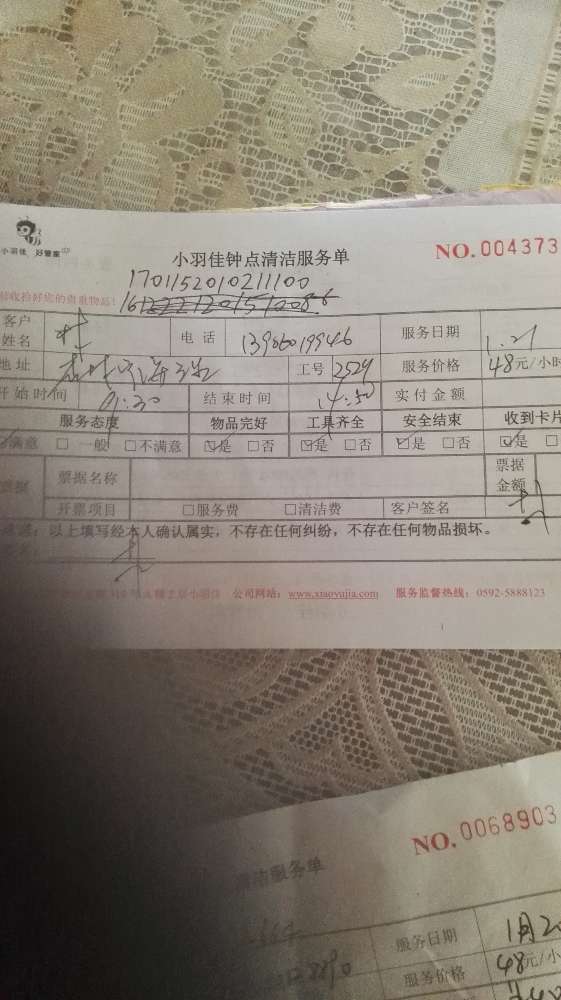 小羽佳 好管家
小羽佳钟点清洁服务单
NO. 004373
1701152010211100
好您的贵重物品!
客户姓名 电话 13906019946 服务日期 1.21
地址 工号 2529 服务价格 48元/小时
开始时间 结束时间 14:30 实付金额
服务态度 物品完好 工具齐全 安全结束 收到卡片
满意 □ 一般 □不满意 ☑是 □否 ☑是 □否 ☑是 □否 ☑是 □
票据名称 票据金额
开票项目 □服务费 □清洁费 客户签名
以上填写经本人确认属实,不存在任何纠纷,不存在任何物品损坏。
小羽佳 公司网站:www.xiaoyujia.com 服务监督热线:0592-5888123
NO. 0068903
清洁服务单
服务日期 1月2
服务价格 48元/小